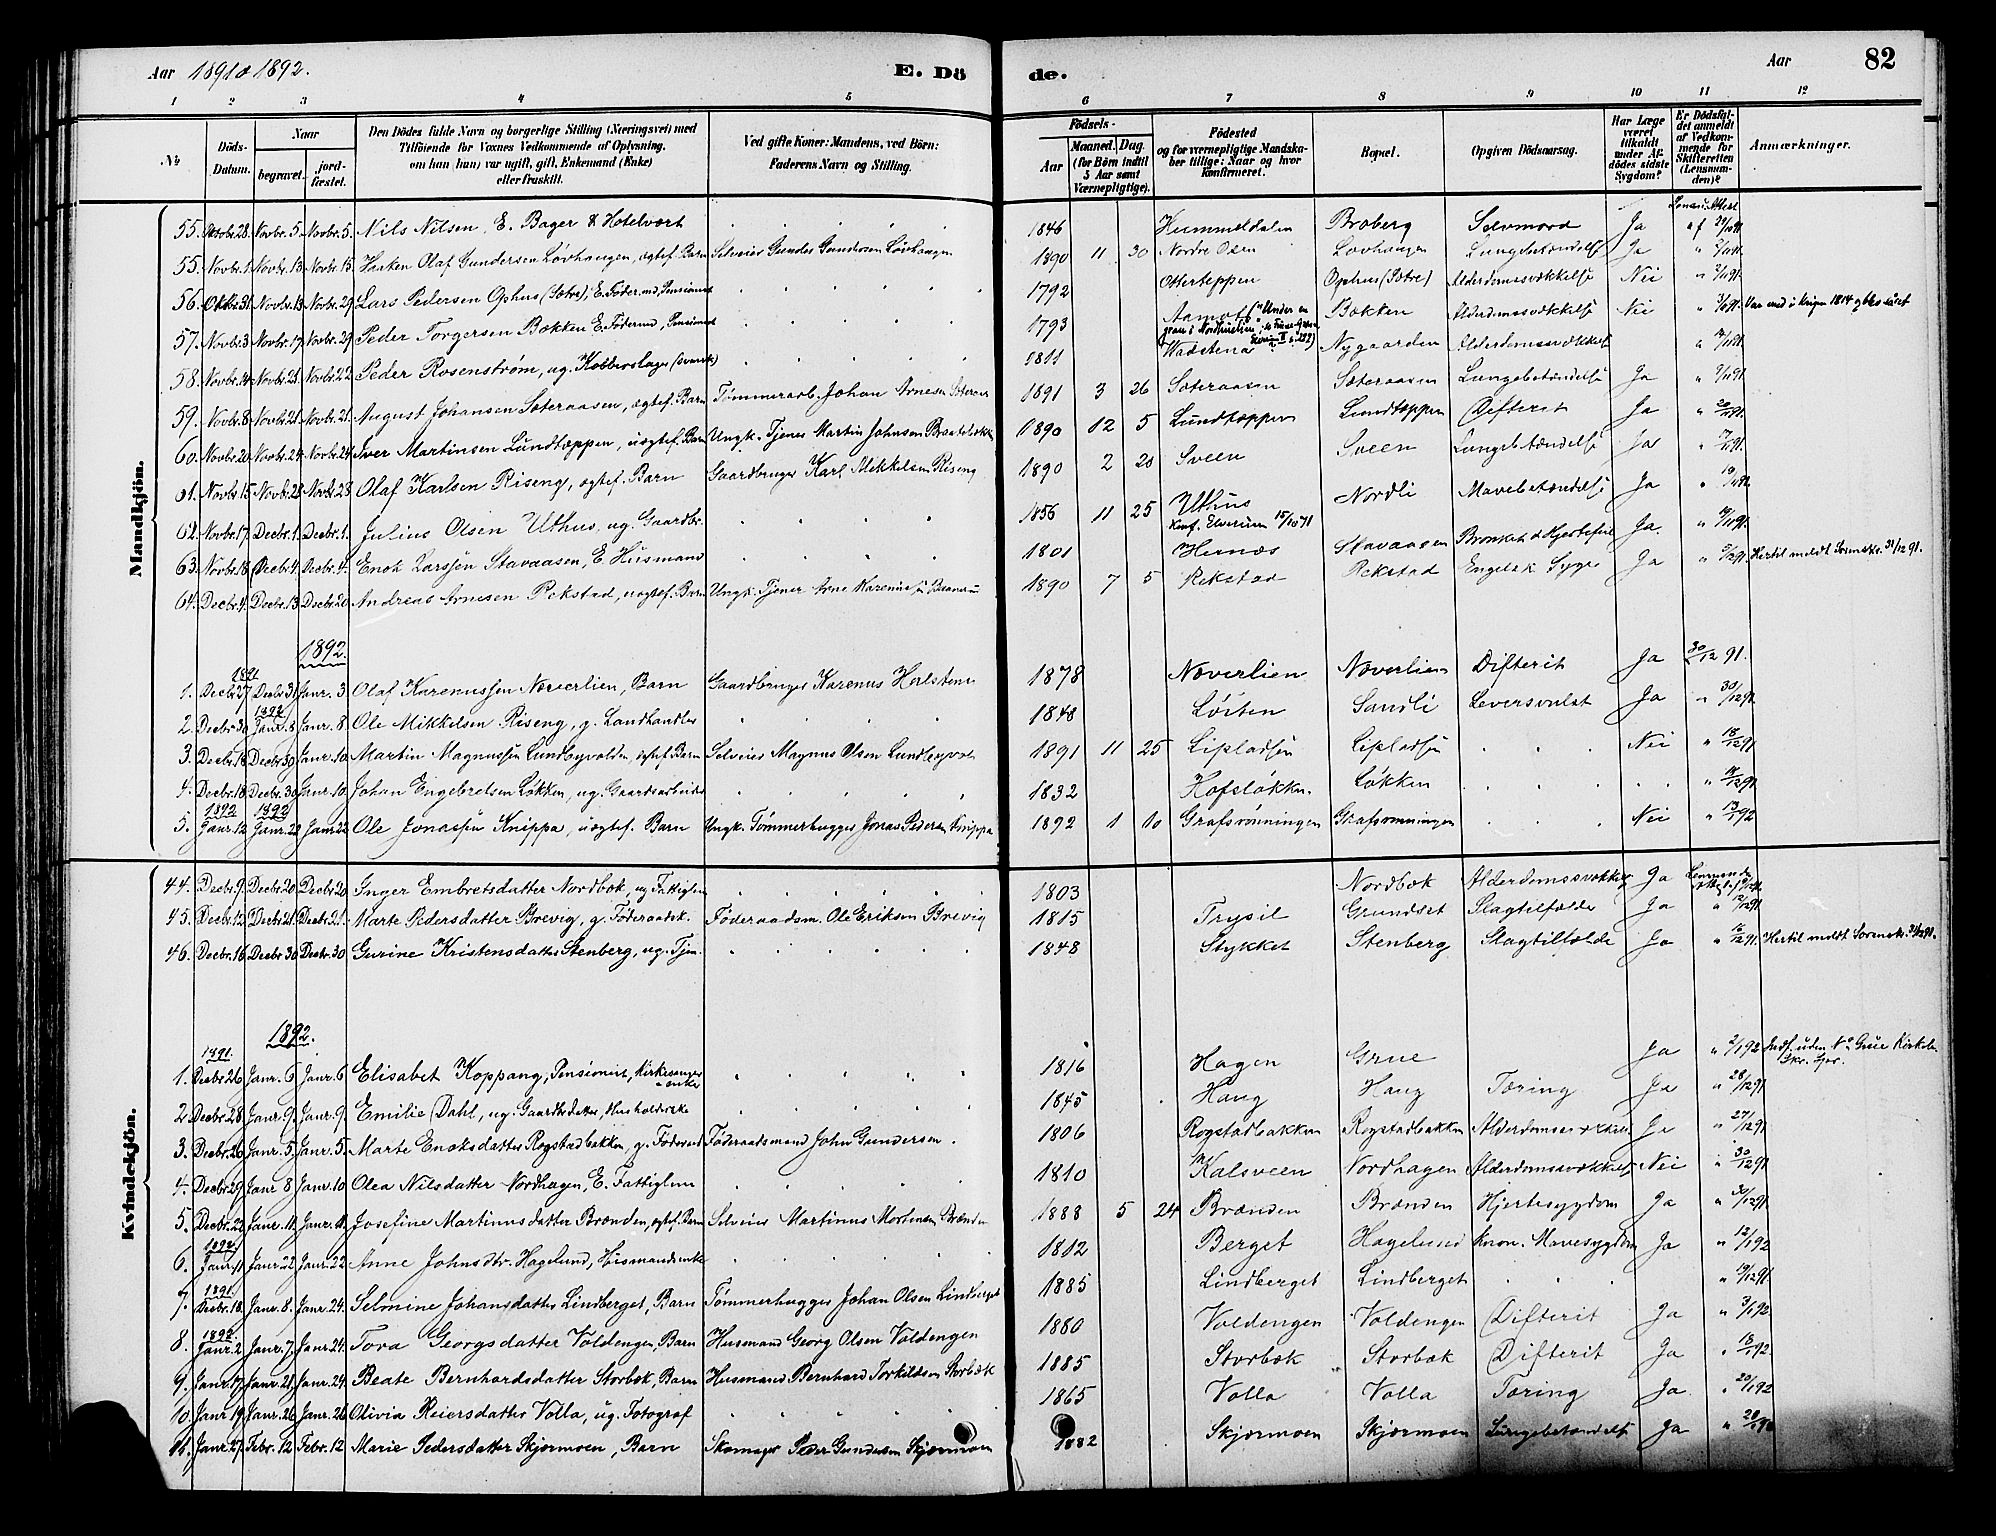 Aar 1891 & 1892. E. Döde. Aar 82
1 2 3 4 5 6 7 8 9 10 11 12
No
Döds-Datum.
Naar begravet. jordfæstet.
Den Dödes fulde Navn og borgerlige Stilling (Næringsvei) med Tilföiende for Voxnes Vedkommende af Oplysning, om han (hun) var ugift, gift, Enkemand (Enke) eller fraskilt.
Ved gifte Koner: Mandens, ved Börn: Faderens Navn og Stilling.
Födsels-
Aar Maaned. Dag. (for Börn indtil 5 Aar samt Værnepligtige).
Födested og for værnepligtige Mandskaber tillige: Naar og hvor konfirmeret.
Bopæl.
Opgiven Dödsaarsag.
Har Læge været tilkaldt under Afdödes sidste Sygdom?
Er Dödsfaldet anmeldt af Vedkommende for Skifteretten (Lensmanden)?
Anmærkninger.
Mandkjön.
55. Novbr. 5. Novbr. 5. Nils Nilsen, E. Bager & Hotelvært 1846 Hummeldalen Broberg Selvmord Ja
55. Novbr. 1 Novbr. 13 Novbr. 15. Haaken Olaf Gundersen Lövhaugen, ægtef. Barn Selveier Gunder Gundersen Lövhaugen 1890 11 30 Nordre Osen Lovhaugen Lungebetændelse Ja
56. Oktbr. 31 Novbr. 13 Novbr. 29 Lars Pedersen Ophus (Sætre), E. Föder.md, Pensionist 1792 Ophus (Sætre) Alderdomssvækkelse Nei
57. Novbr. 3 Novbr. 17 Novbr. 29 Peder Torgersen Bækken E. Föder.md, Pensionist 1793 Aamot Bækken Alderdomssvækkelse Nei Var med i krigen 1814 og blev såret
58. Novbr. 14 Novbr. 21. Novbr. 22 Peder Rosenstrøm, ug. Kobberslager (svensk) 1811 Wadstena Nygaarden Alderdomssvækkelse
59. Novbr. 8 Novbr. 21 Novbr. 21. August Johansen Sæteraasen, ægtef. Barn Tömmerarb. Johan Arnesen Sæteraas 1891 3 26 Sæteraasen Sæteraasen Lungebetændelse Ja
60. Novbr. 20 Novbr. 24 Novbr. 24 Iver Martinsen Lundtæppen, uægtef. Barn Ungk. Tjener Martin Johnsen 1890 12 5 Lundtæppen Lundtæppen Difterit Ja
61. Novbr. 15 Novbr. 28 Novbr. 28 Olaf Karlsen Riseng, ægtef. Barn Gaardbruger Karl Mikkelsen Riseng 1890 2 20 Sveen Sveen Lungebetændelse Ja
62. Novbr. 17. Decbr. 1. Decbr. 1. Julius Olsen Uthus, ug. Gaardbr. 1856 11 25 Uthus Konf. Elverum 15/10 71 Nordli Mavebetændelse Ja
63. Novbr. 18 Decbr. 4. Decbr. 4. Enok Larssen Stavaasen, E. Husmand 1801 Hernæs Stavaasen Bronkit & Hjertefeil Ja.
64. Decbr. 4. Decbr. 13 Decbr. 20 Andreas Arnesen Rekstad, uægtef. Barn Ungk. Tjener Arne Karenius 1890 7 5 Rekstad Rekstad Engelsk Syge Ja Hertil meldt Sorenskr. 31/12 91.
1892.
1891
1. Decbr. 27 Decbr. 31 Janr. 3 Olaf Karenussen Næverlien, Barn Gaardbruger Karenus Halstens 1878 Næverlien Næverlien Difterit Ja 30/12 91.
1892
2. Decbr. 30 Janr. 8 Janr. 8. Ole Mikkelsen Riseng, g. Landhandler 1848 Löiten Sandli Leversvulst Ja 30/12 91
3. Decbr. 18 Decbr. 30 Janr. 10. Martin Magnussen Lundbyvolden, ægtef. Barn Selveier Magnus Olsen Lundbyvol 1891 11 25 Lipladsen Lipladsen Nei 18/12 91
4. Decbr. 18. Decbr. 30 Janr. 10. Johan Engebretsen Løkken, ug. Gaardsarbeider 1832 Hofsløkken. Løkken
1892 1892
5. Janr. 12 Janr. 22 Janr. 22 Ole Jonassen Knippa, uægtef. Barn Ungk. Tömmerhugger Jonas Pedersen Knippa 1892 1 10 Grafsrønningen Grafsrønningen Nei
Kvindekjön.
44. Decbr. 9. Decbr. 20 Decbr. 20 Inger Embretsdatter Nordbæk, ug. Fattiglem 1803 Nordbæk Alderdomssvækkelse Ja
45. Decbr. 12 Decbr. 21. Decbr. 21. Marte Pedersdatter Brevig, g. Föderaadsk. Föderaadsm. Ole Eriksen Brevig 1815 Trysil Grundset Slagtilfælde Ja
46. Decbr. 16 Decbr. 30 Decbr. 30 Gurine Kristensdatter Stenberg, ug. Tjen. 1848 Stykket Stenberg Slagtilfælde Ja Hertil meldt Sorenskr. 31/12 91.
1892.
1891.
1. Decbr. 26 Janr. 6 Janr. 6 Elisabet Koppang, Pensionist, Kirkesangerenke 1816 Hagen Grue Ja 2/1 92
2. Decbr. 28. Janr. 9. Janr. 9. Emilie Dahl, ug. Gaardbr. datter, Husholderske 1845 Haug Haug Tæring Ja 28/12 91
3. Decbr. 26 Janr. 5. Janr. 5. Marte Enoksdatter Rogstadbakken, g. Föderaad Föderaadsmand John Gundersen. 1806 Rogstadbakken Rogstadbakken Alderdomssvækkelse Ja 27/12 91
4. Decbr. 29 Janr. 8 Janr. 10 Olea Nilsdatter Nordhagen, E. Fattiglem 1810 Kalsveen Nordhagen Alderdomssvækkelse Nei 30/12 91
5. Decbr. 22 Janr. 11. Janr. 11. Josefine Martinusdatter Brænden, ægtef. Barn Selveier Martinus Mortensen Brænden 1888 5 24 Brænden Brænden Hjertesygdom Ja 30/12 91
1892.
6. Janr. 11 Janr. 22 Janr. 22 Anne Johnsdtr. Hagelund, Husmandsenke 1812 Berget Hagelund Kron. Mavesygdom Ja 12/1 92
1891.
7. Decbr. 18. Janr. 8. Janr. 24. Selmine Johansdatter Lindberget, Barn Tömmerhugger Johan Olsen Lindberget 1885 Lindberget Lindberget 19/12 91
1892
8. Janr. 2 Janr. 7. Janr. 24. Tora Georgsdatter Voldengen, Barn Husmand Georg Olsen Voldengen 1880 Voldengen Voldengen Difterit Ja 3/1 92
9. Janr. 17. Janr. 21. Janr. 24. Beate Bernhardsdatter Storbæk, Barn Husmand Bernhard Torkildsen Storbæk 1885 Storbæk Storbæk Difterit Ja 18/1 92
10. Janr. 19 Janr. 26 Janr. 26 Olivia Reiersdatter Volla, ug. Fotograf 1865 Volla Volla Tæring Ja 20/1 92
11. Janr. 27 Febr. 12 Febr. 12 Marie Pedersdatter Skjærmoen, Barn Skomager Peder Gundersen Skjærmoen 1882 Skjærmoen Skjærmoen Lungebetændelse Ja